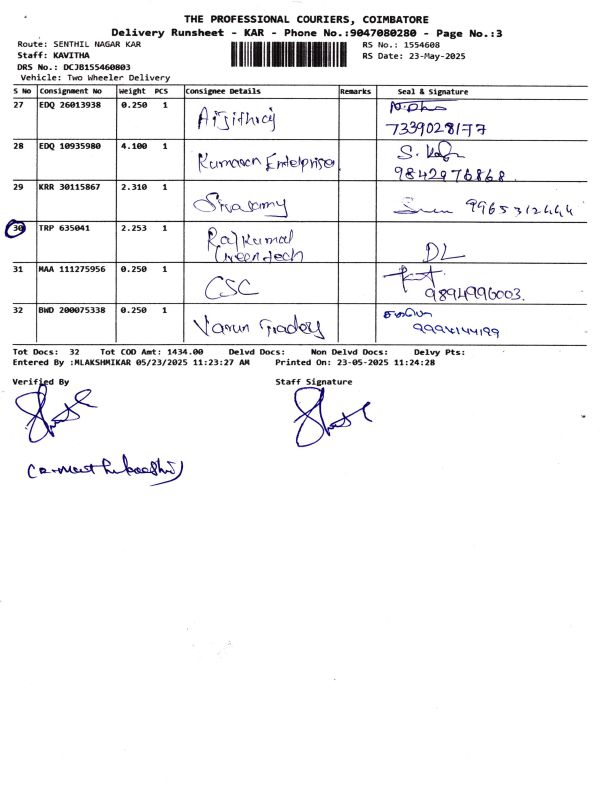 THE PROFESSIONAL COURIERS, COIMBATORE
Delivery Runsheet - KAR - Phone No.:9047080280 - Page No.:3
Route: SENTHIL NAGAR KAR
RS No.: 1554608
Staff: KAVITHA
RS Date: 23-May-2025
DRS No.: DCJB155460803
Vehicle: Two Wheeler Delivery
S No Consignment No Weight PCS Consignee Details Remarks Seal & Signature
27 EDQ 26013938 0.250 1
7339028177
28 EDQ 10935980 4.100 1 Kumaran Enterprise
9842976868
29 KRR 30115867 2.310 1 Sivasamy 9965312444
30 TRP 635041 2.253 1 Rajkumar
Greentech DL
31 MAA 111275956 0.250 1 CSC
9894996003.
32 BWD 200075338 0.250 1 Varun Traders
9994144199
Tot Docs: 32 Tot COD Amt: 1434.00 Delvd Docs: Non Delvd Docs: Delvy Pts:
Entered By :MLAKSHMIKAR 05/23/2025 11:23:27 AM Printed On: 23-05-2025 11:24:28
Verified By Staff Signature